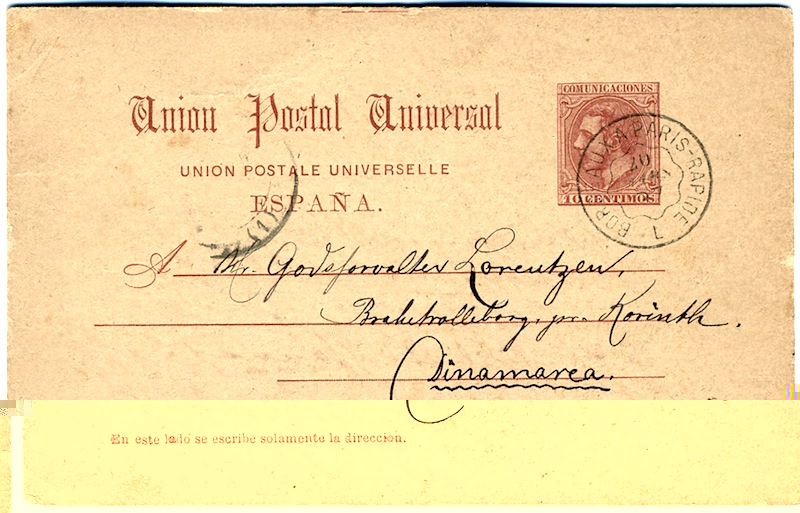 COMUNICACIONES
Union Postal Universal
UNION POSTALE UNIVERSELLE
ESPAÑA.
10 CENTIMOS
BORD AUX A PARIS-RAPIDE L
20
(1)
A Mr. Godsforvalter Lorentzen,
Brahetrolleborg, pr. Korinth.
Dinamarca.
En este lado se escribe solamente la direccion.